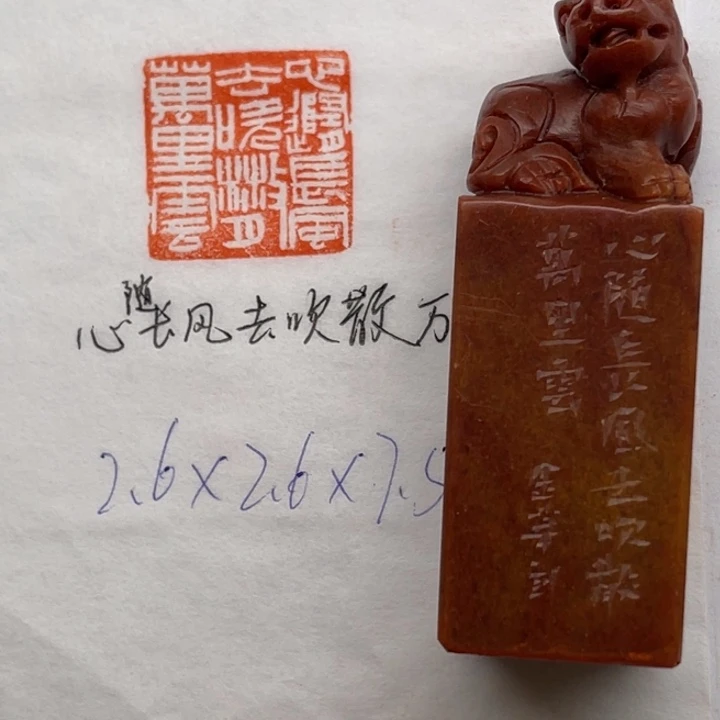 心隨長風
去吹散
萬里雲
心随长风去吹散万
2.6×2.6×7.5
心隨長風去吹散
萬里雲